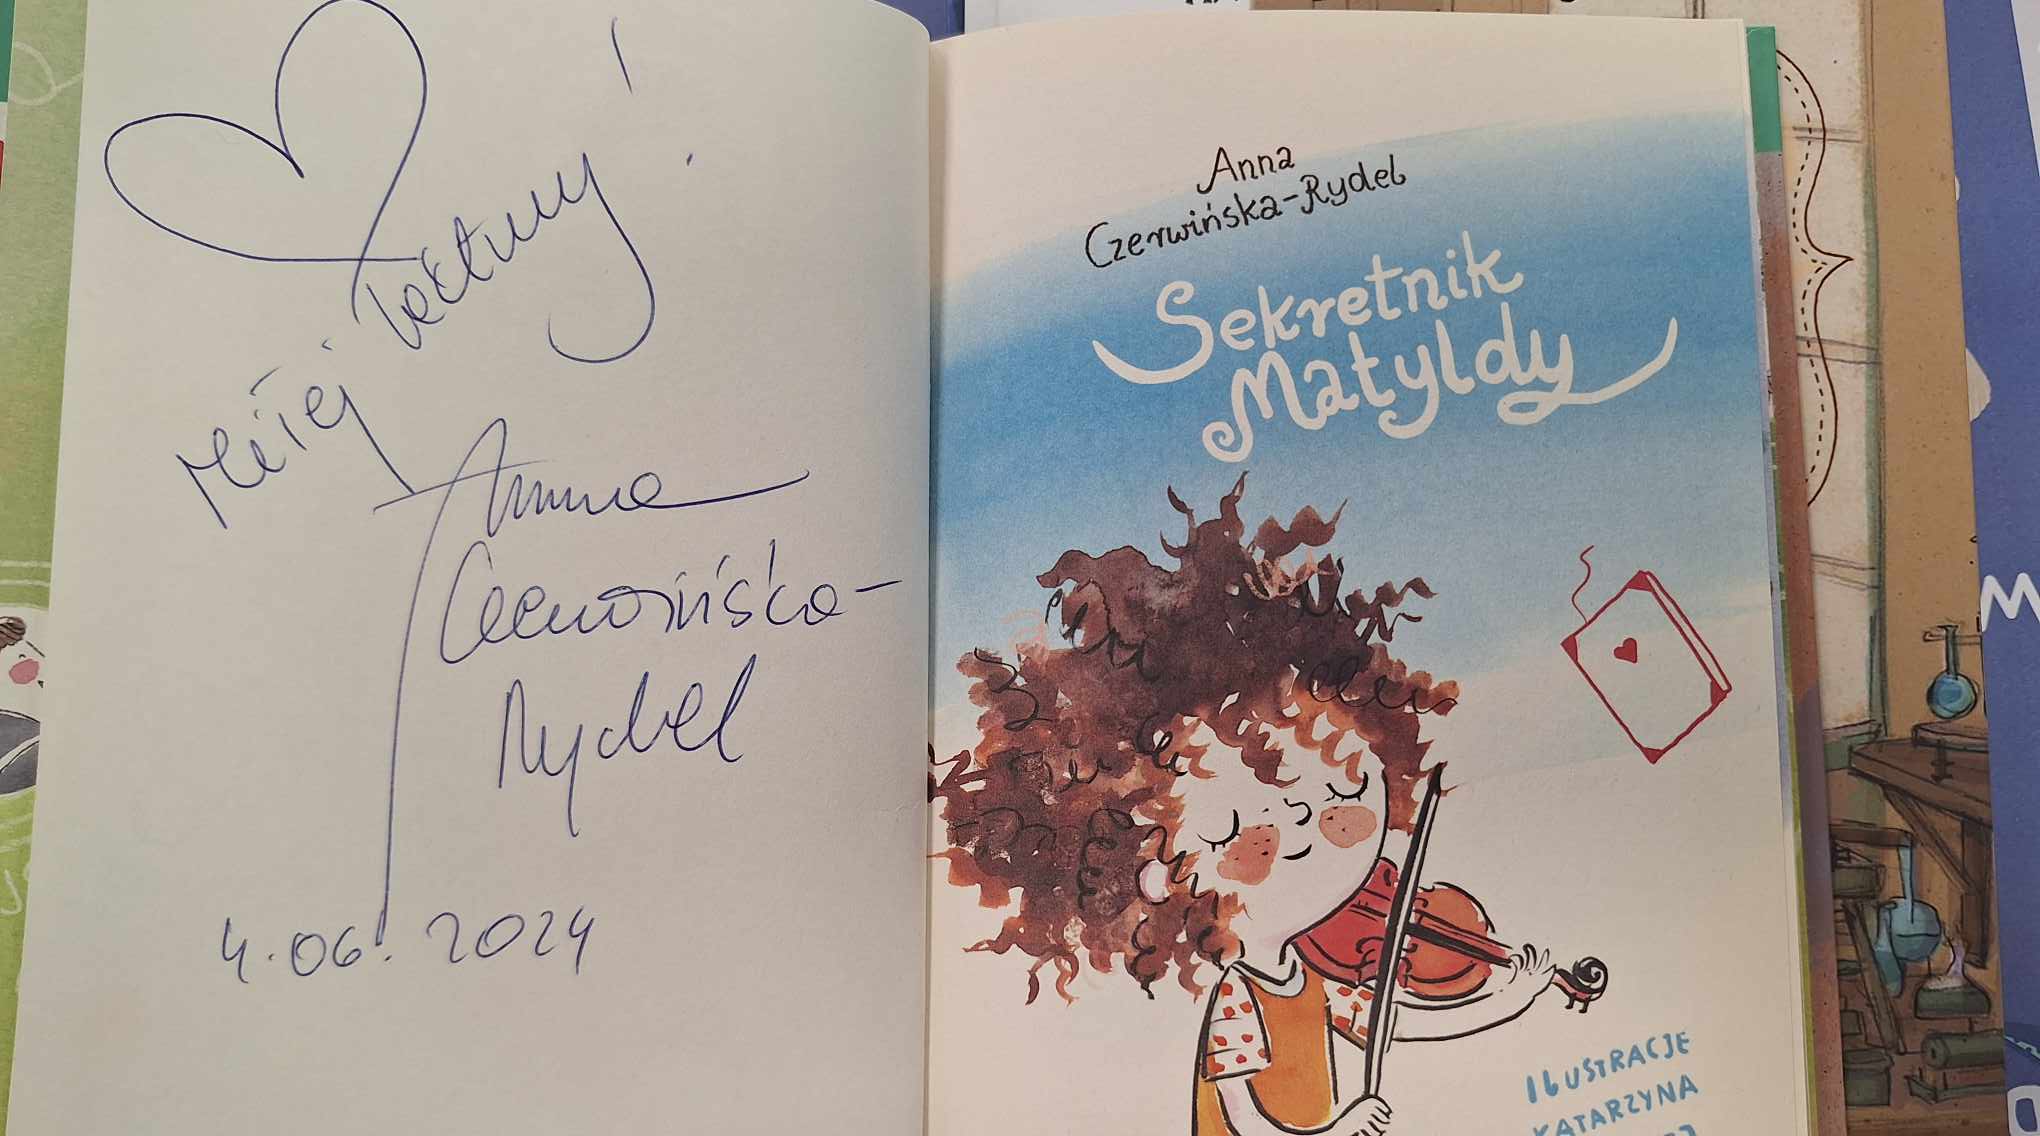 Miłej lektury!
Anna
Czerwińska-
Rydel
4.06.2024
Anna
Czerwińska-Rydel
Sekretnik
Matyldy
ILUSTRACJE
KATARZYNA